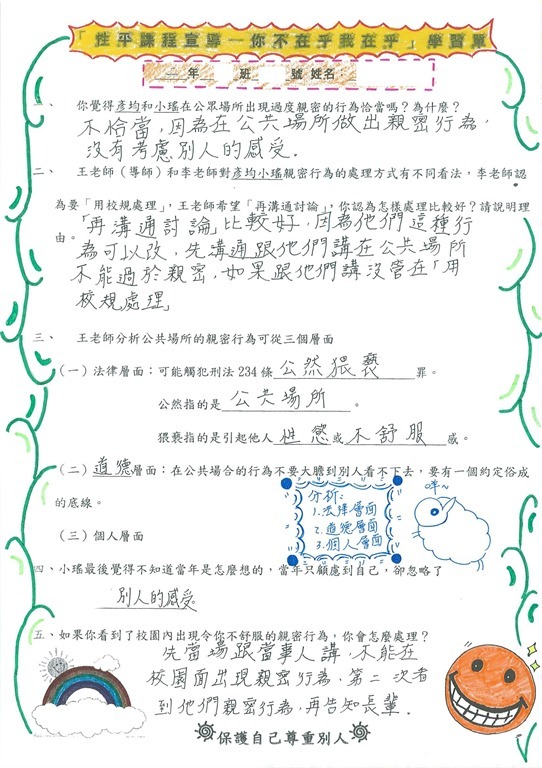 「性平課程宣導—你不在乎我在乎」學習單
二年 班 號 姓名:
一、 你覺得彥均和小瑤在公眾場所出現過度親密的行為恰當嗎?為什麼?
不恰當,因為在公共場所做出親密行為,
沒有考慮別人的感受.
二、 王老師(導師)和李老師對彥均小瑤親密行為的處理方式有不同看法,李老師認
為要「用校規處理」,王老師希望「再溝通討論」,你認為怎樣處理比較好?請說明理
由。
「再溝通討論」比較好,因為他們這種行
為可以改,先溝通跟他們講在公共場所
不能過於親密,如果跟他們講沒管在「用
校規處理」
三、 王老師分析公共場所的親密行為可從三個層面
(一)法律層面:可能觸犯刑法 234 條公然猥褻罪。
公然指的是公共場所。
猥褻指的是引起他人性慾或不舒服感。
(二)道德層面:在公共場合的行為不要大膽到別人看不下去,要有一個約定俗成
的底線。
(三)個人層面
分析:
1.法律層面
2.道德層面
3.個人層面
咩~
四、小瑤最後覺得不知道當年是怎麼想的,當年只顧慮到自己,卻忽略了
別人的感受。
五、如果你看到了校園內出現令你不舒服的親密行為,你會怎麼處理?
先當場跟當事人講,不能在
校園面出現親密行為,第二次看
到他們親密行為,再告知長輩.
保護自己尊重別人